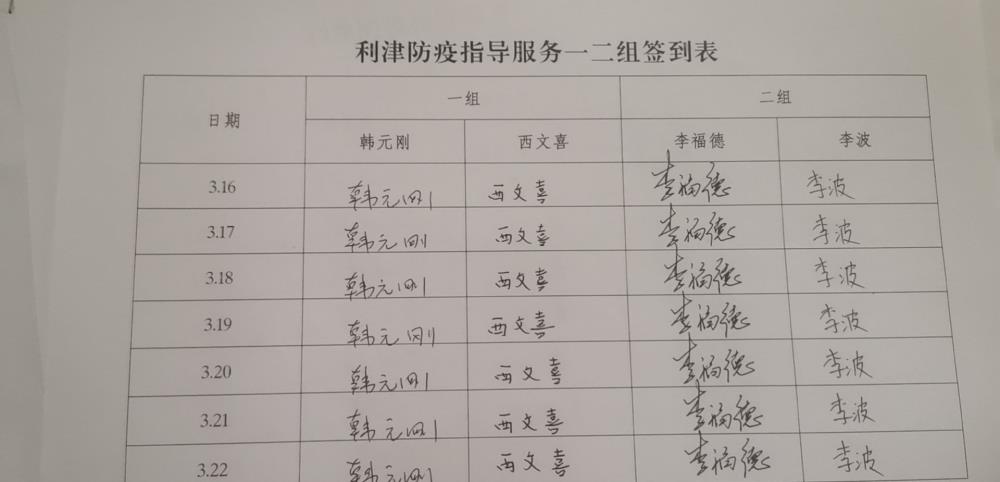 利津防疫指导服务一二组签到表
日期 一组 二组
韩元刚 西文喜 李福德 李波
3.16 韩元刚 西文喜 李福德 李波
3.17 韩元刚 西文喜 李福德 李波
3.18 韩元刚 西文喜 李福德 李波
3.19 韩元刚 西文喜 李福德 李波
3.20 韩元刚 西文喜 李福德 李波
3.21 韩元刚 西文喜 李福德 李波
3.22 韩元刚 西文喜 李福德 李波